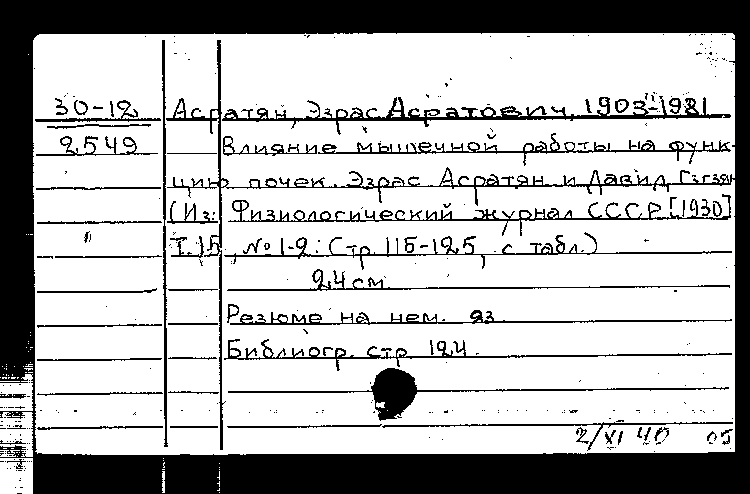 30-12 Асратян, Эзрас Асратович, 1903-1981
2549 Влияние мышечной работы на функ-
цию почек. Эзрас Асратян и Давид
(Из: Физиологический журнал СССР [1930]
Т. 15, № 1-2: Стр. 115-125, с табл.)
24 см.
Резюме на нем. яз.
Библиогр. стр. 124.
2/XI 40 05